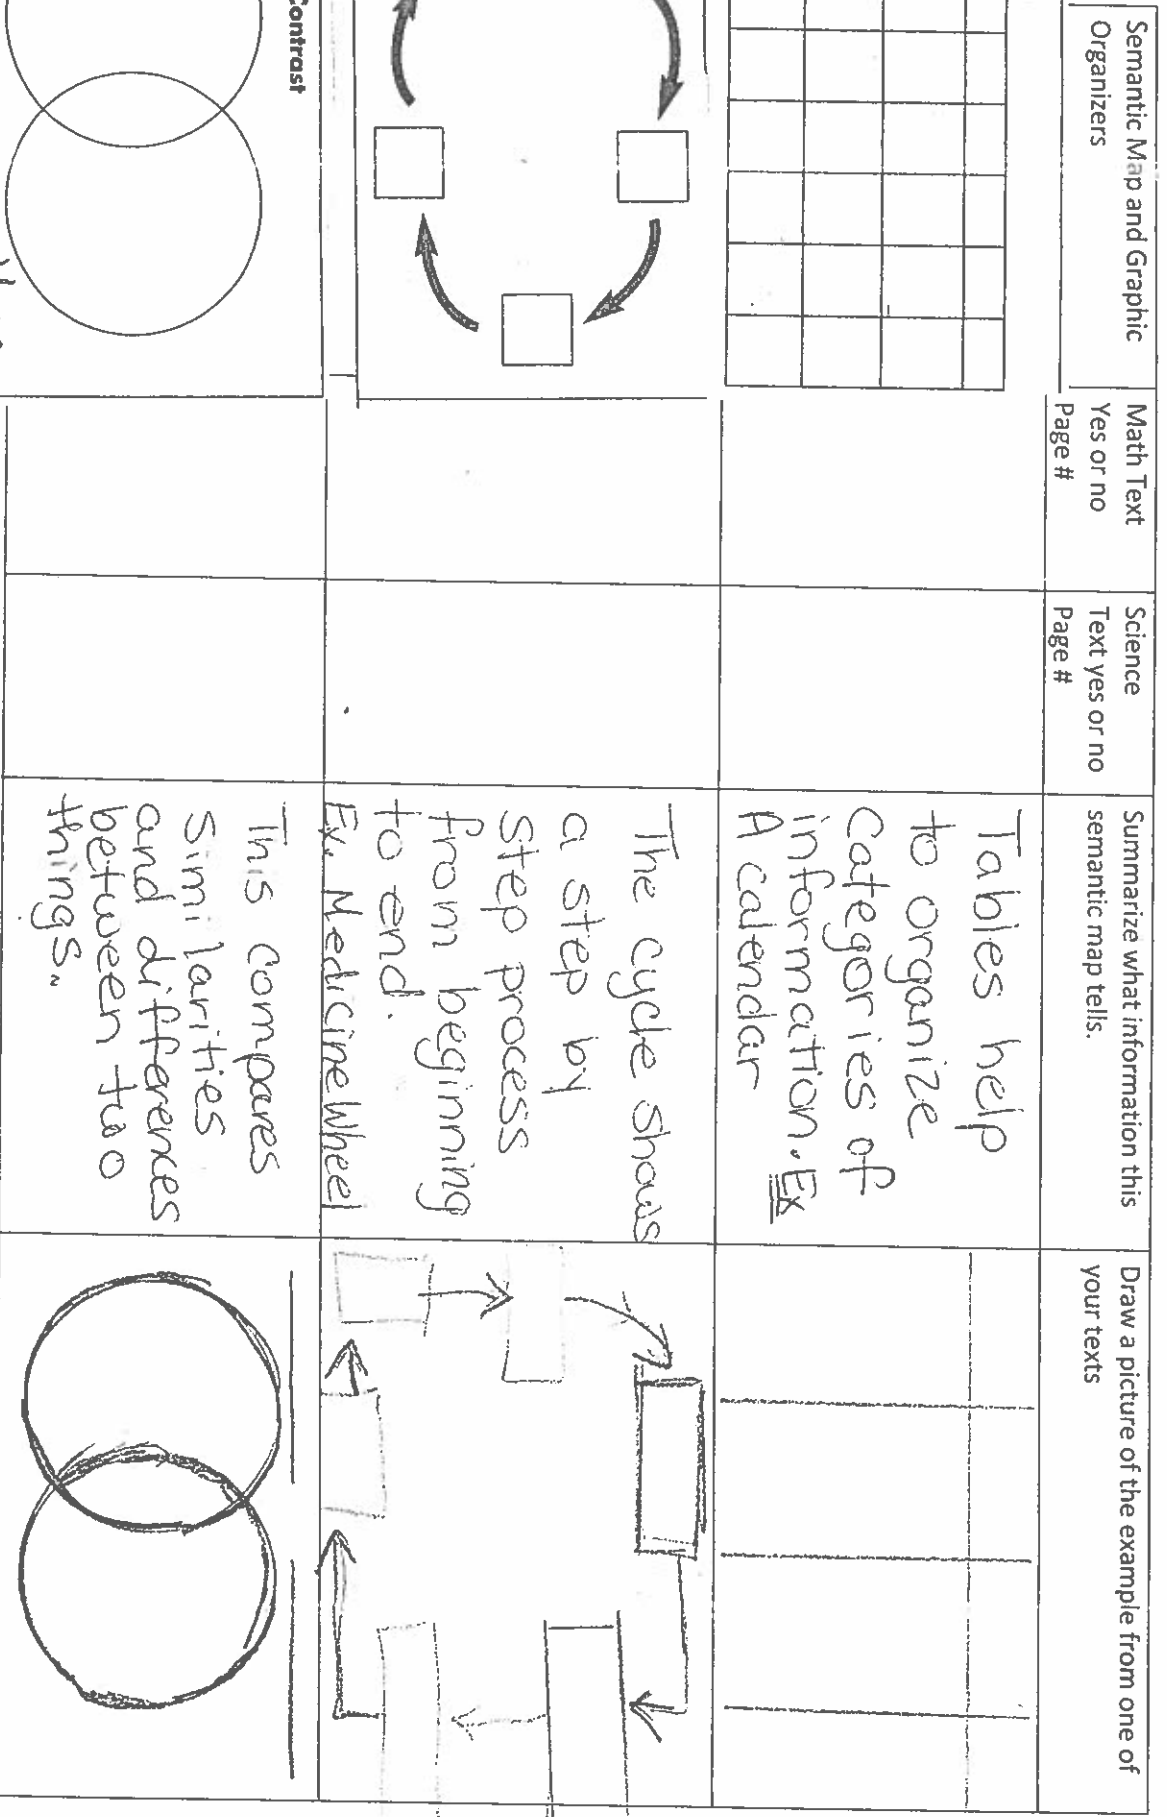 Semantic Map and Graphic
Organizers
Math Text
Yes or no
Page #
Science
Text yes or no
Page #
Summarize what information this
semantic map tells.
Draw a picture of the example from one of
your texts
Tables help
to organize
Categories of
information. Ex
A calendar
The cycle shows
a step by
step process
from beginning
to end.
Ex. Medicine Wheel
Contrast
This compares
similarities
and differences
between two
things.